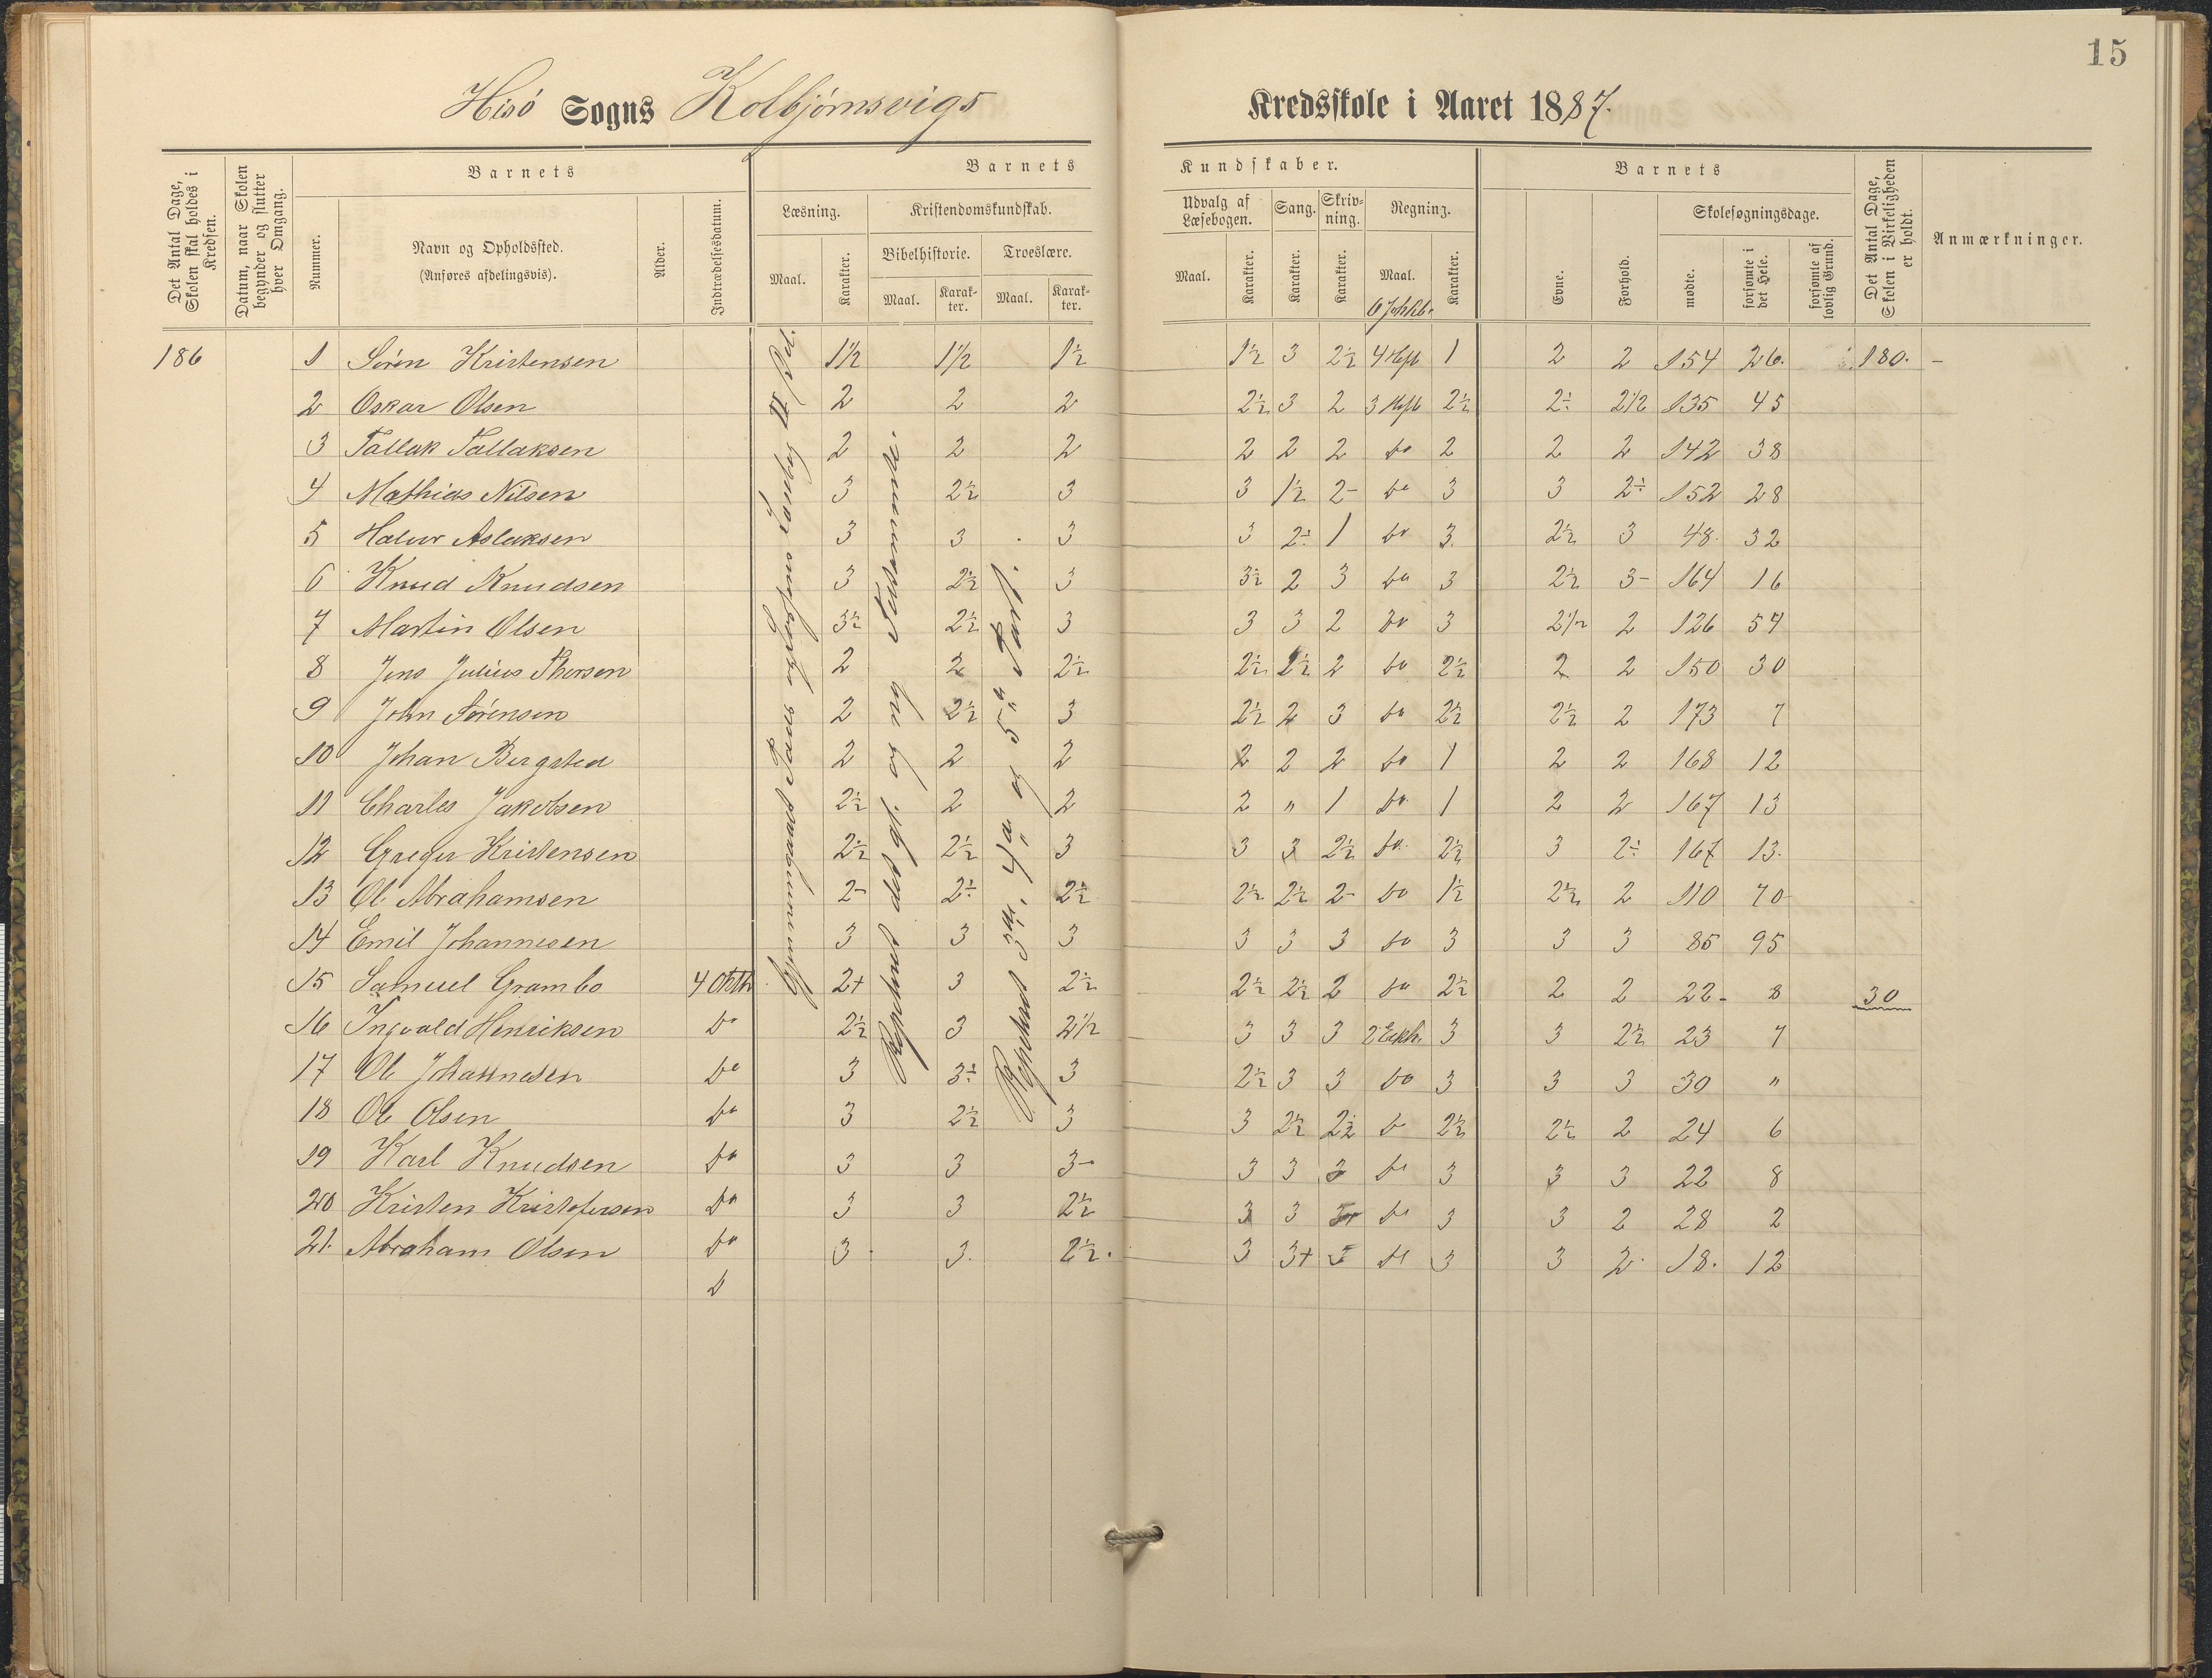 15
Hisö Sogns Kolbjörnsvigs Kredsskole i Aaret 1887.
Det Antal Dage, Skolen skal holdes i Kredsen.
Datum, naar Skolen begynder og slutter hver Omgang.
Barnets
Nummer.
Navn og Opholdssted.
(Anføres afdelingsvis).
Alder.
Indtrædelsesdatum.
Barnets Kundskaber.
Læsning. Kristendomskundskab. Udvalg af Læsebogen. Sang. Skrivning. Regning.
Bibelhistorie. Troeslære.
Maal. Karakter. Maal. Karakter. Maal. Karakter. Maal. Karakter. Karakter. Karakter. Maal. Karakter.
Barnets
Evne. Forhold.
Skolesøgningsdage.
mødte. forsømte i det Hele. forsømte af lovlig Grund.
Det Antal Dage, Skolen i Virkeligheden er holdt.
Anmærkninger.
186 1 Sören Kristensen 1½ 1½ 1½ 1½ 3 2½ 4 Heft 1 2 2 154 26. 180. -
2 Oskar Olsen 2 2 2 2½ 3 2 3 Heft 2½ 2÷ 2½ 135 45
3 Tallak Tallaksen 2 2 2 2 2 2 do 2 2 2 142 38
4 Mathias Nilsen 3 2½ 3 3 1½ 2- do 3 3 2÷ 152 28
5 Halvor Aslaksen 3 3 3 3 2÷ 1 do 3. 2½ 3 48 32
6 Knud Knudsen 3 2½ 3 3½ 2 3 do 3 2½ 3- 164 16
7 Martin Olsen 3½ 2½ 3 3 3 2 do 3 2½ 2 126 54
8 Jens Julius Thorsen 2 2 2½ 2½ 2½ 2 do 2½ 2 2 150 30
9 John Sörensen 2 2½ 3 2½ 2 3 do 2½ 2½ 2 173 7
10 Johan Bergsted 2 2 2 2 2 2 do 1 2 2 168 12
11 Charles Jakobsen 2½ 2 2 2 " 1 do 1 2 2 167 13
12 Greger Kristensen 2½ 2½ 3 3 3 2½ do 2½ 3 2÷ 167 13.
13 Ole Abrahamsen 2- 2÷ 2½ 2½ 2½ 2- do 1½ 2½ 2 110 70
14 Emil Johannesen 3 3 3 3 3 3 do 3 3 3 85 95
15 Samuel Grambo 4 Okth 2+ 3 2½ 2½ 2½ 2 do 2½ 2 2 22- 8 30
16 Ingvald Henriksen Do 2½ 3 2½ 3 3 3 3 3 2½ 23 7
17 Ole Johannesen Do 3 3÷ 3 2½ 3 3 do 3 3 3 30 "
18 Ole Olsen Do 3 2½ 3 3 2½ 2½ do 2½ 2½ 2 24 6
19 Karl Knudsen Do 3 3 3- 3 3 3 do 3 3 3 22 8
20 Kristen Kristofersen Do 3 3 2½ 3 3 do 3 3 2 28 2
21. Abraham Olsen Do 3. 3. 2½. 3 3+ do 3 3 2. 18. 12
D